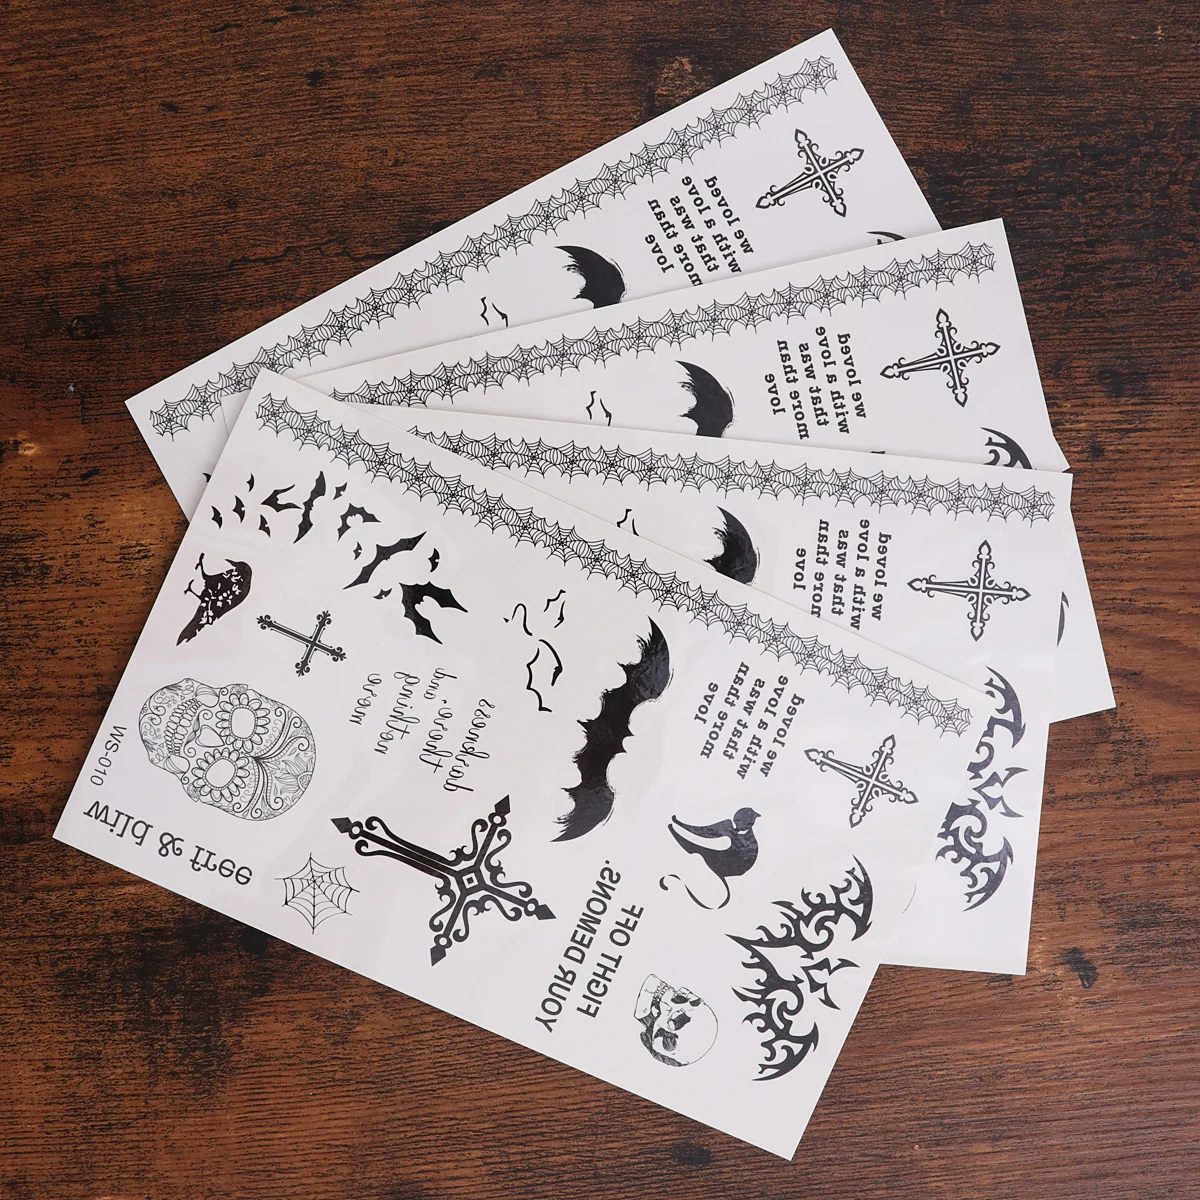 we loved
with a love
that was
more than
love
we loved
with a love
that was
more than
love
we loved
with a love
that was
more than
love
we loved
with a love
that was
more than
love
FIGHT OFF
YOUR DEMONS.
wild & free
WS-010